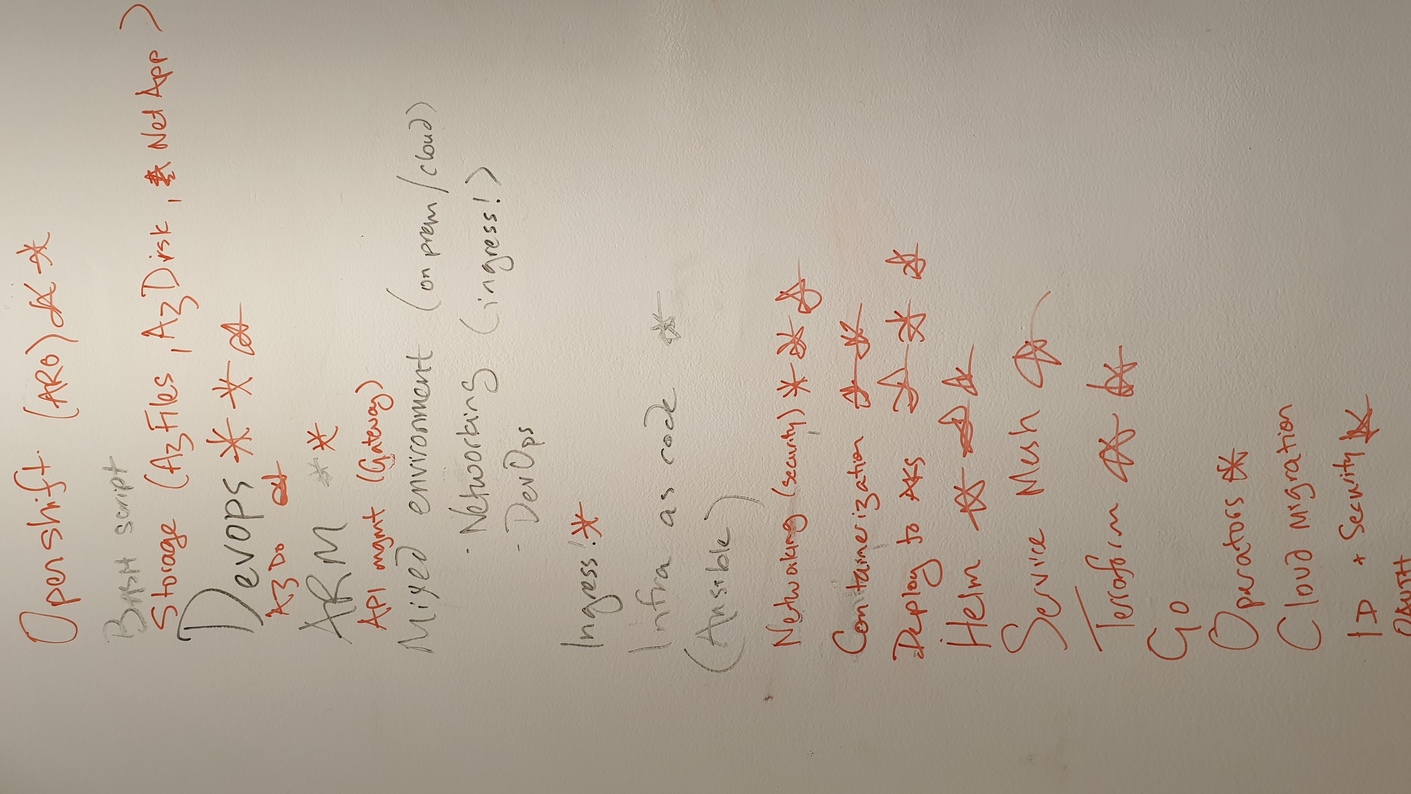 Openshift (ARO) ☆ ☆
BASH script
Storage (Az Files, Az Disk, ☆ NetApp)
Devops * * ☆
AzDo ☆
ARM * *
API mgmt (Gateway)
Mixed environment (on prem/cloud)
· Networking (ingress!)
- DevOps
Ingress! *
Infra as code ☆
(Ansible)
Networking (security) * ☆ ☆
Containerization ☆ ☆
Deploy to AKS ☆ ☆ ☆
Helm ☆ ☆ ☆
Service Mesh ☆
Terraform ☆ ☆
Go
Operators ☆
Cloud migration
ID + Security ☆
OAUTH